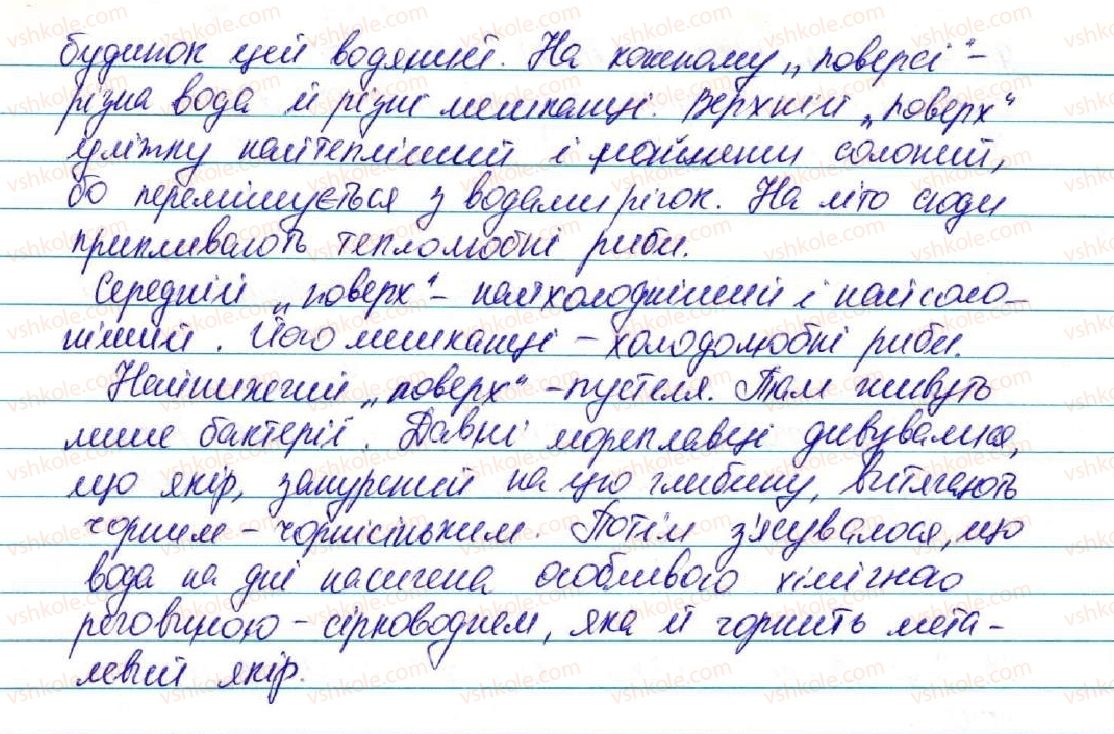 будинок цей водяний. На кожному „поверсі“ –
різна вода й різні мешканці. Верхній „поверх“
улітку найтепліший і найменш солоний,
бо перемішується з водами річок. На літо сюди
припливають теплолюбні риби.
Середній „поверх“ – найхолодніший і найсоло-
ніший. Його мешканці – холодолюбні риби.
Найнижчий „поверх“ – пустеля. Там живуть
лише бактерії. Давні мореплавці дивувалися,
що якір, занурений на цю глибину, витягають
чорним – чорнісіньким. Потім з'ясувалося, що
вода на дні насичена особливою хімічною
речовиною – сірководнем, яка й чорнить мета-
левий якір.